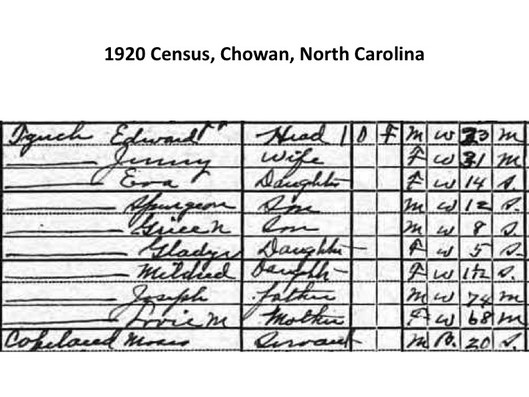 1920 Census, Chowan, North Carolina
Edward Head 1 O F M W 33 M
Jinny Wife F W 31 M
Eva Daughter F W 14 S.
Spurgeon Son M W 12 S.
Grice N Son M W 8 S.
Gladys Daughter F W 5 S.
Mildred Daughter F W S.
Joseph Father M W 74 M
M Mother F W 68 M
Moses Servant M B. 20 S.